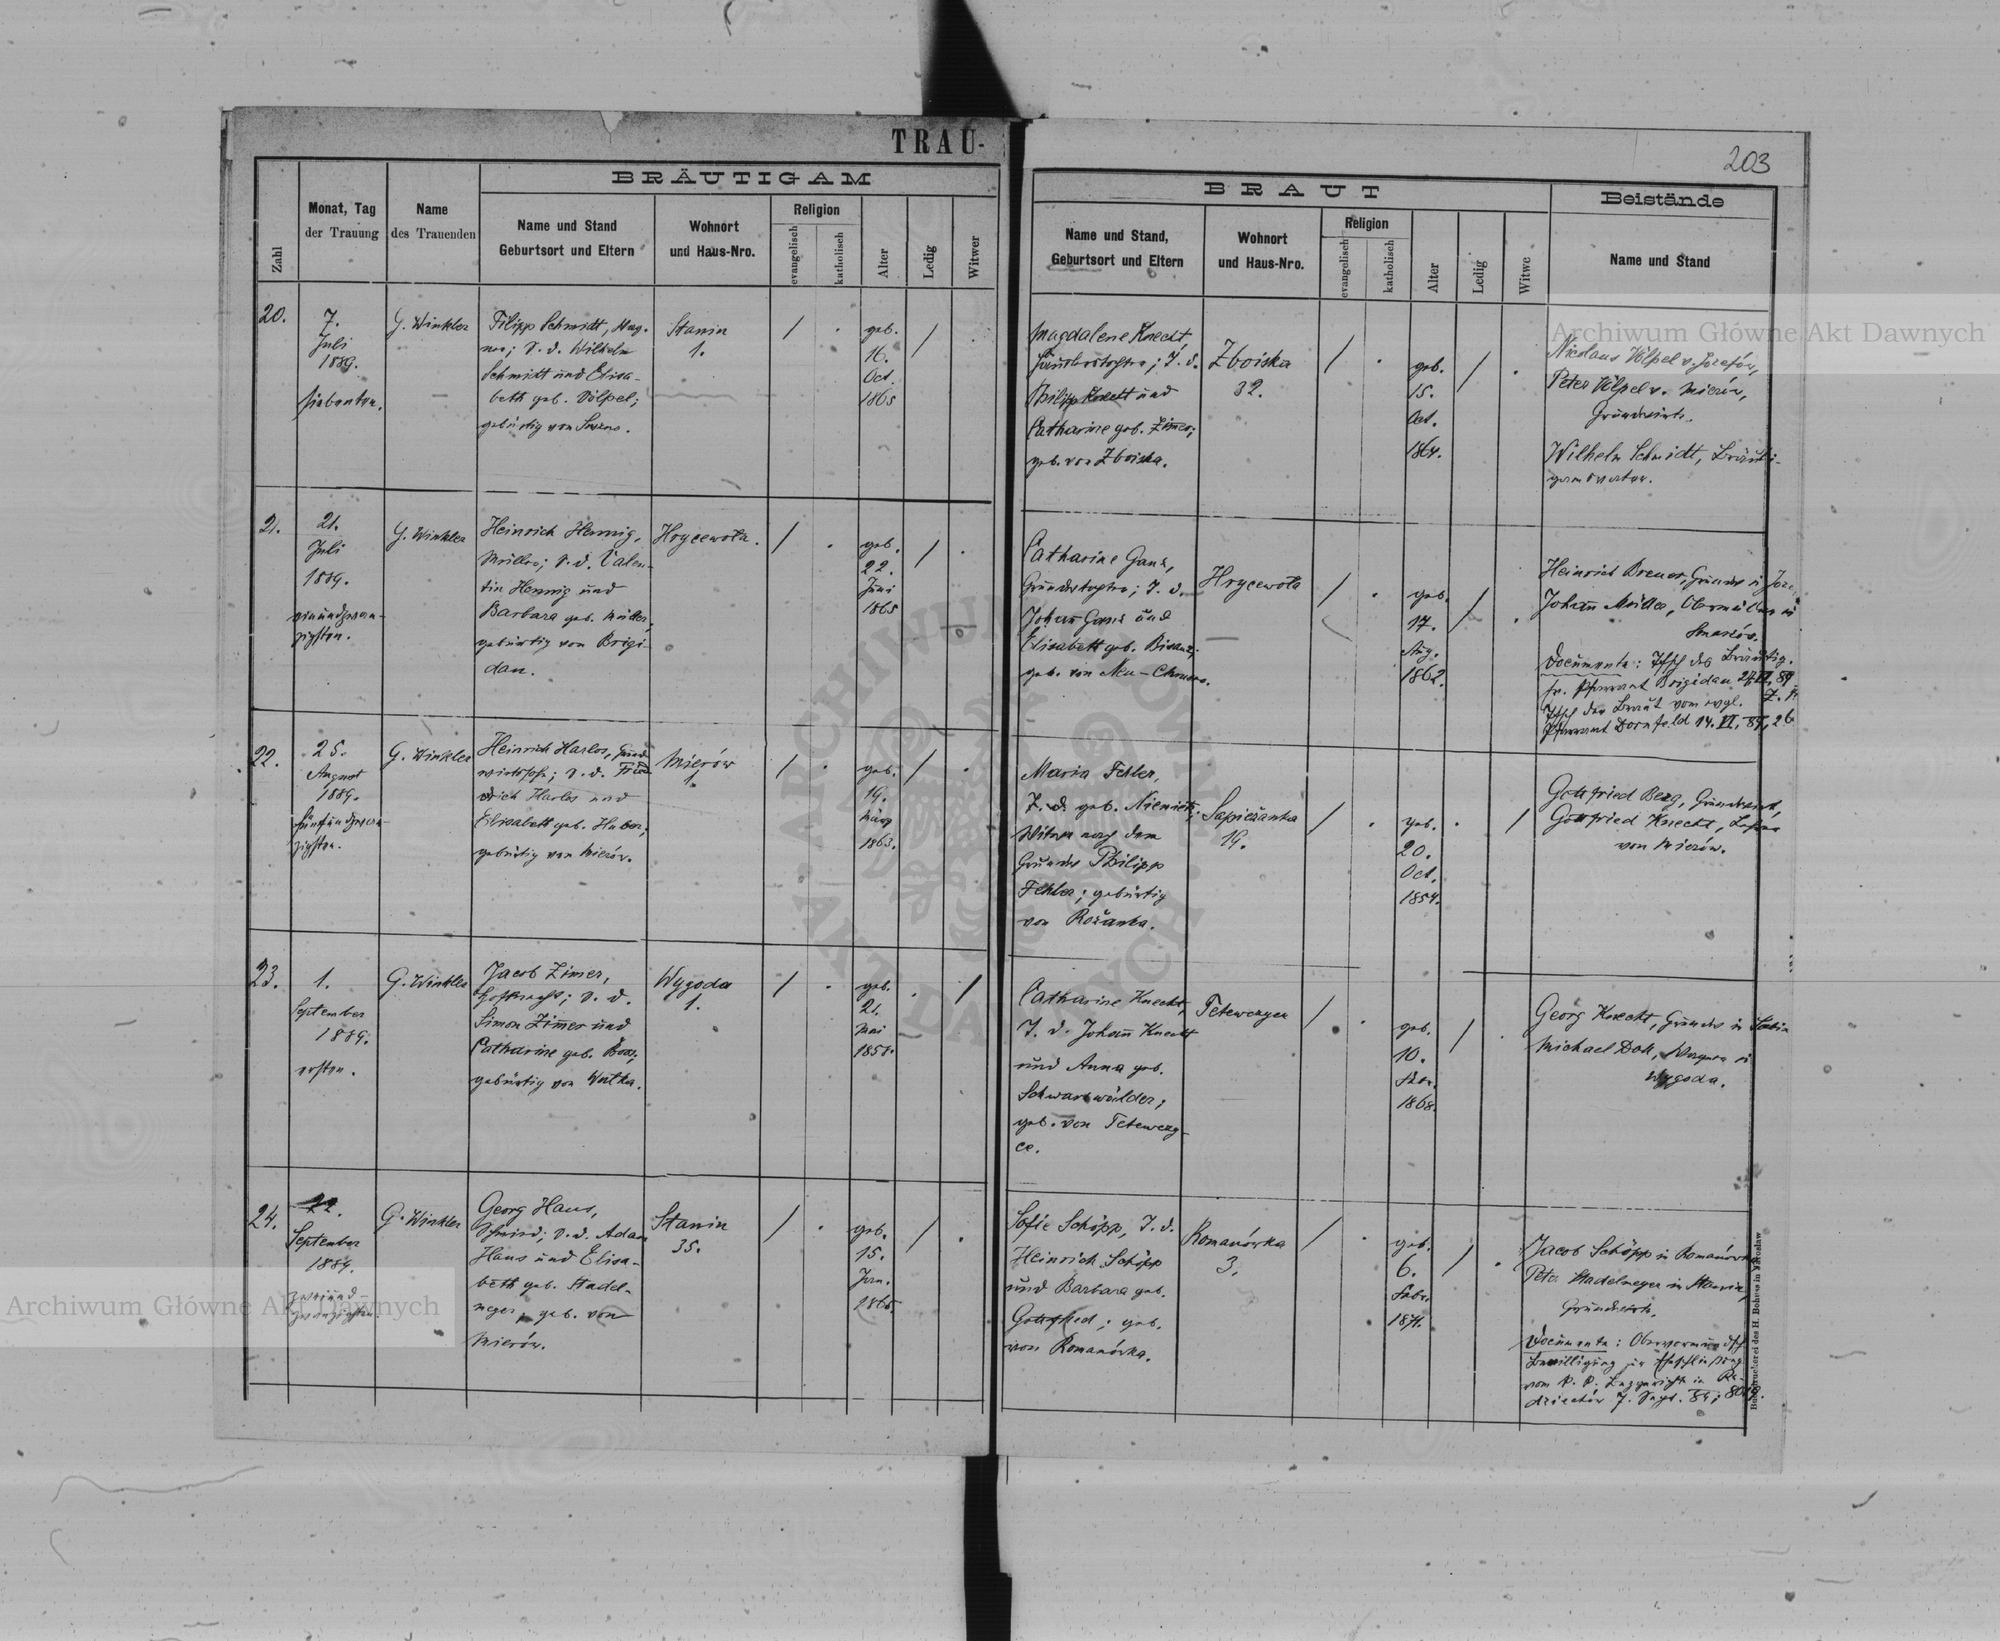 TRAU-
203
BRÄUTIGAM
Zahl
Monat, Tag
der Trauung
Name
des Trauenden
Name und Stand
Geburtsort und Eltern
Wohnort
und Haus-Nro.
Religion
evangelisch
katholisch
Alter
Ledig
Witwer
BRAUT
Name und Stand,
Geburtsort und Eltern
Wohnort
und Haus-Nro.
Religion
evangelisch
katholisch
Alter
Ledig
Witwe
Beistände
Name und Stand
20.
7.
Juli
1889.
siebenten.
G. Winkler
Filipp Schmidt, Wag-
ner; S. d. Wilhelm
Schmidt und Elisa-
beth geb. Völpel;
gebürtig von
Stanin
1.
geb.
16.
Oct.
1865
Magdalene Knecht,
T. d.
Philipp Knecht und
Catharine geb. Zimer;
geb. von Zboiska.
Zboiska
32.
geb.
15.
Oct.
1864.
Nicolaus Völpel v. Josefów,
Peter Völpel v. Mierów,
Grundwirte.
Wilhelm Schmidt, Bräuti-
gamsvater.
21.
21.
Juli
1889.
einundzwan-
zigsten.
G. Winkler
Heinrich Hennig,
Müller; S. d. Valen-
tin Hennig und
Barbara geb. Müller,
gebürtig von Brigi-
dau.
Hrycewola.
geb.
22.
Juni
1865
Catharine Ganz,
T. d.
Johann Ganz und
Elisabeth geb.
geb. von Neu-
Hrycewola
geb.
17.
Aug.
1862.
Heinrich
Johann Müller, Obermüller in
Documente: des Bräutig.
Pfarramt Brigidau
der Braut vom evgl.
Pfarramt Dornfeld 14. VI. 89, 26
22.
25.
August
1889.
fünfundzwan-
zigsten.
G. Winkler
Heinrich Harlos, Grund-
wirtssohn; S. d. Fried-
drich Harlos und
Elisabeth geb. Huber;
gebürtig von Mierów.
Mierów
1.
geb.
19.
März
1863.
Maria Fehler,
T. d. geb.
Witwe nach dem
Grundw Philipp
Fehler; gebürtig
von Rožanka.
Sapiežanka
19.
geb.
20.
Oct.
1854.
Gottfried Berg, Grundwirt,
Gottfried Knecht,
von Mierów.
23.
1.
September
1889.
ersten.
G. Winkler
Jacob Zimer,
S. d.
Simon Zimer und
Catharine geb. Boos;
gebürtig von
Wygoda
1.
geb.
21.
Mai
Catharine Knecht,
T. d. Johann Knecht
und Anna geb.
Schwarzwälder;
geb. von Tetewczy-
ce.
Tetewczyce
geb.
10.
1868.
Georg Knecht, Grundw in
Michael Doll, Wagner in
Wygoda.
24.
22.
September
1889.
zweiund-
zwanzigsten.
G. Winkler
Georg Haus,
Schmied; S. d. Adam
Haus und Elisa-
beth geb. Stadel-
meyer, geb. von
Mierów.
Stanin
35.
geb.
15.
Jan.
1865
Sofie Schöpp, T. d.
Heinrich Schöpp
und Barbara geb.
Gottfried; geb.
von Romanówka.
Romanówka
3.
geb.
6.
Febr.
1871.
Jacob Schöpp in Romanówka
Peter Stadelmeyer in Stanin,
Grundwirte.
Documente:
Bewilligung zur Eheschließung
vom
7. Sept. 89;
Buchdruckerei des H. Bohuss in Jaroslaw
Archiwum Główne Akt Dawnych
Archiwum Główne Akt Dawnych
ARCHIWUM GŁÓWNE AKT DAWNYCH